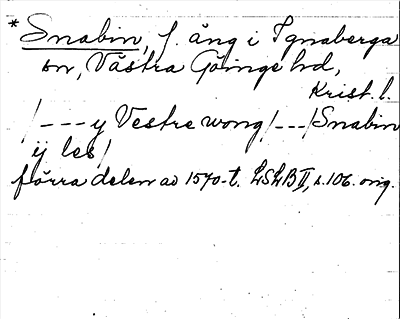 * Snabin, f. äng i Ignaberga
sn, Västra Göinge hd,
Krist. l.
/---y Vestre wong/---/Snabin
ij les/
förra delen av 1570-t. LSLB II, s. 106. orig.